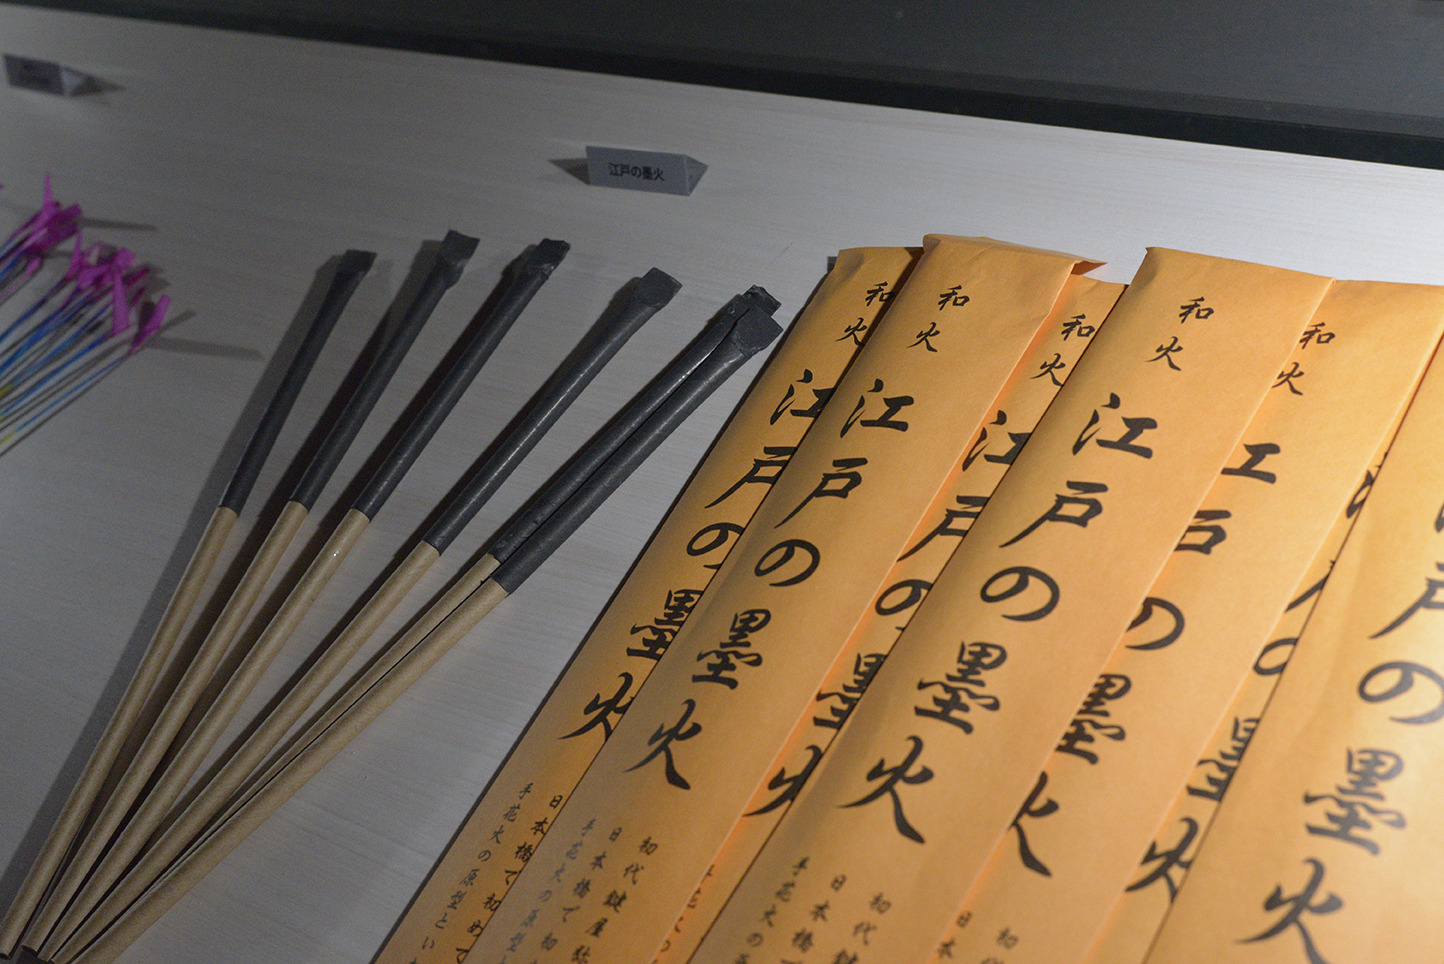 江戸の墨火
和火
江戸の墨火
日本橋で初めて
手花火の原型とい
和火
江戸の墨火
初代鍵屋弥
日本橋で初
手花火の原型
和火
江戸の墨火
和火
江戸の墨火
初代鍵
日本橋
手花火の
和火
江戸の墨火
初
日本
戸の墨火